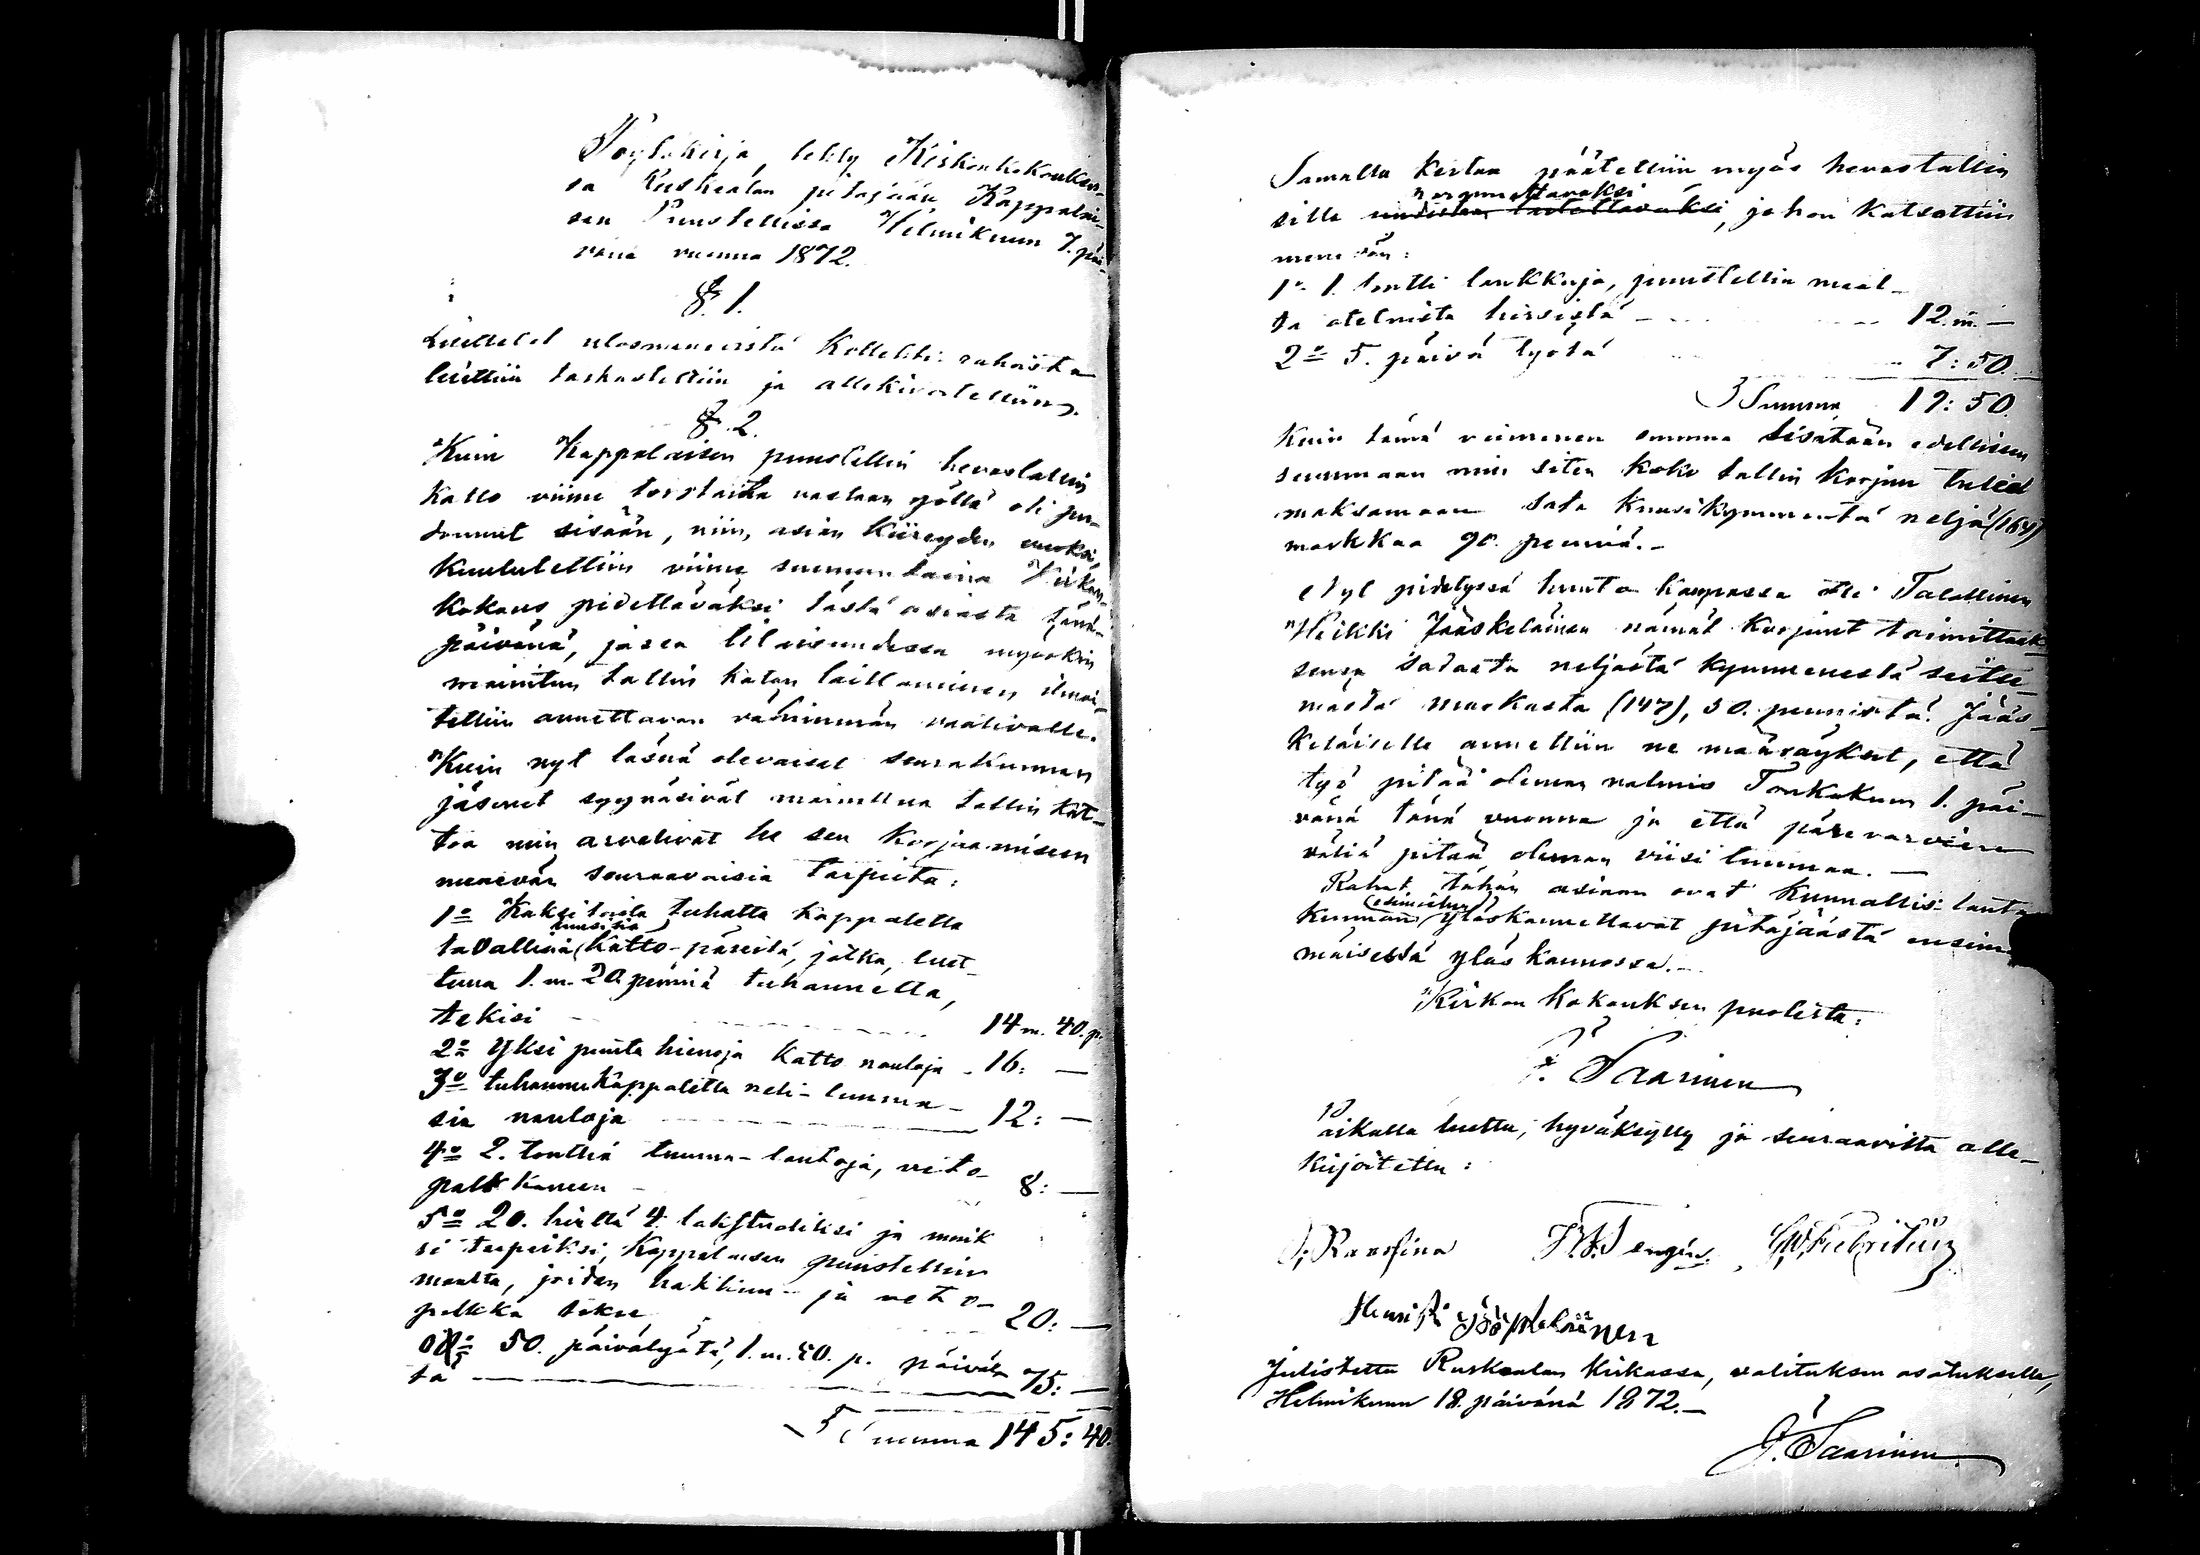 Pöytäkirja, tehty Kirkonkokoukses-
sa Ruskealan pitäjään Kappalai-
sen Puustellissa Helmikuun 7. päi-
vänä vuonna 1872.
§. 1.
Luettelot ulosmenoista Kollehti: rahoista
luettiin tarkastettiin ja allekirjoitettiin.
§. 2.
Kuin Kappalaisen puustellin hevostallin
katto viime torstaita vastaan yöllä oli pu-
donnut sisään, niin, asian kiireyden vuoksi,
kuulutettiin viime sunnuntaina Kirkon-
kokous pidettäväksi tästä asiasta tänä-
päivänä, jossa tilaisuudessa myöskin
mainitun tallin katon laittaminen ilmoi-
tettiin annettavan vähimmän vaativalle.
Kuin nyt läsnä olevaiset seurakunnan
jäsenet syynäsivät mainittua tallin kat-
toa niin arvelivat he sen korjaamiseen
menevän seuraavaisia tarpeita:
1:o Kaksitoista tuhatta kappaletta
tavallisia (kuusisia) katto-päreitä, jotka, luet-
tuna 1. m. 20 penniä tuhannelta,
tekisi 14 m. 40. p.
2:o Yksi puuta hienoja katto nauloja - 16: —
3:o tuhannu kappaletta neli-tuuma-
sia nauloja 12: —
4:o 2. tolttia tuuma-lautoja, veto-
palkkaneen 8: —
5:o 20. hirttä 4. 
si tarpeiksi, Kappalaisen puustellin
maalta, joiden hakkuu- ja veto-
palkka tekee 20: —
50. päivätyötä, 1. m. 50. p. päiväl-
tä 75: —
Summa 145: 40.
Samalla kertaa päätettiin myös hevostallin
silta, johon katsottiin
menevän:
1:o 1. toltti lankkuja, puustellin maal-
ta otetuista hirsistä 12. m. —
2:o 5. päivä työtä 7: 50.
Summa 19: 50.
Kuin tämä viimeinen summa lisätään edelliseen
summaan niin siten koko tallin korjuu tulee
maksamaan sata kuusikymmentä neljä (164)
markkaa 90. penniä.-
Nyt pidetyssä huuto kaupassa otti Talollinen
Heikki Jääskeläinen nämät korjuut toimittaak-
sensa sadasta neljästä kymmenestä seitse-
mästä markasta (147), 50. pennistä. Jääs-
keläiselle annettiin ne määräykset, että
työ pitää oleman valmis Toukokuun 1. päi-
vänä tänä vuonna ja että pärevarvien
väliä pitää oleman viisi tuumaa. —
Rahat tähän asiaan ovat Kunnallis: lauta-
kunnan (esimiehen) ylöskannettavat pitäjäästä ensim-
mäisessä ylös kannossa.-
Kirkon Kokouksen puolesta:
J. Saarinen
Paikalla luettu, hyväksytty ja seuraavilta alle-
kirjoitettu:
Henriki Jääskeläinen
Julistettu Ruskealan kirkossa, valituksen osotuksella,
Helmikuun 18. päivänä 1872.—
J. Saarinen.